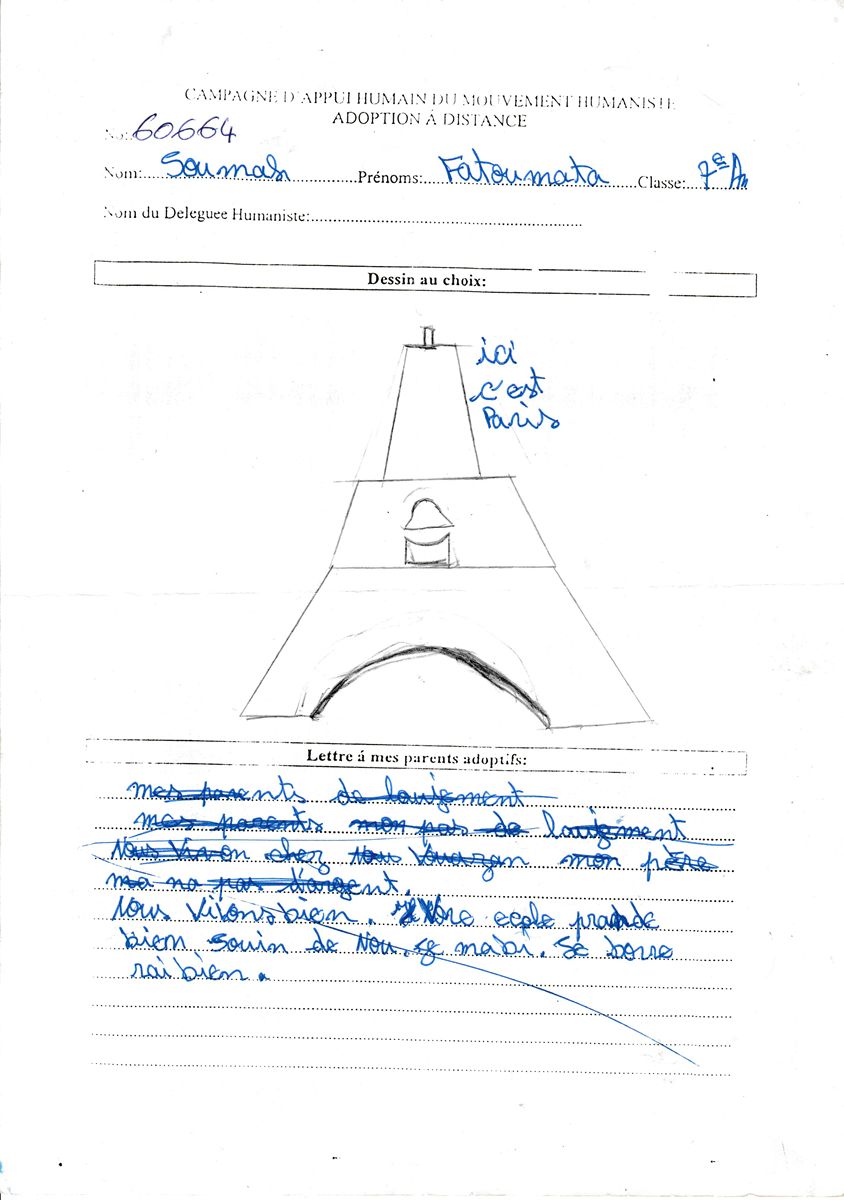 CAMPAGNE D'APPUI HUMAIN DU MOUVEMENT HUMANISTE
ADOPTION Á DISTANCE
No: 60664
Nom: Soumah Prénoms: Fatoumata Classe: 7e An
Nom du Deleguee Humaniste:
Dessin au choix:
ici
c'est
Paris
Lettre á mes parents adoptifs:
mes parents de lougement
mes parents mon pas de lougement
Nous Vivon chez Nous mon père
ma na pas d'argent.
Nous Vivons bien. Vore ecole prande
bien souin de Nou.
rai bien.